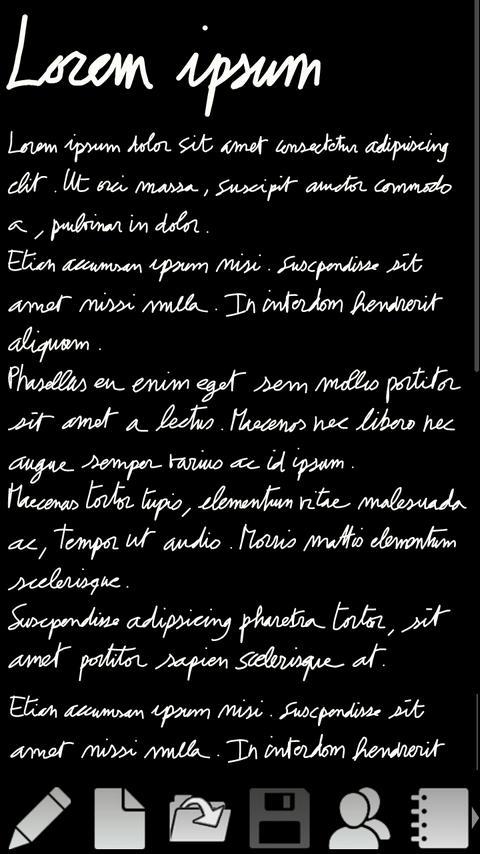 Lorem ipsum
Lorem ipsum dolor sit amet consectetur adipiscing
elit . Ut orci massa , suscipit auctor commodo
a , pulvinar in dolor .
Etian accumsan ipsum nisi . Suscpendisse sit
amet nissi nulla . In interdom hendrerit
aliquam .
Phasellas eu enim eget sem mollis portitor
sit amet a lectus . Maecenos nec libero nec
augue semper varius ac id ipsum .
Maecenas tortor turpis, elementum vitae malesuada
ac, Tempor ut audio . Morsis mattis elementum
scelerisque .
Suscpendisse adipsicing pharetra tortor, sit
amet portitor sapien scelerisque at .
Etian accumsan ipsum nisi . Suscpendisse sit
amet nissi nulla . In interdom hendrerit